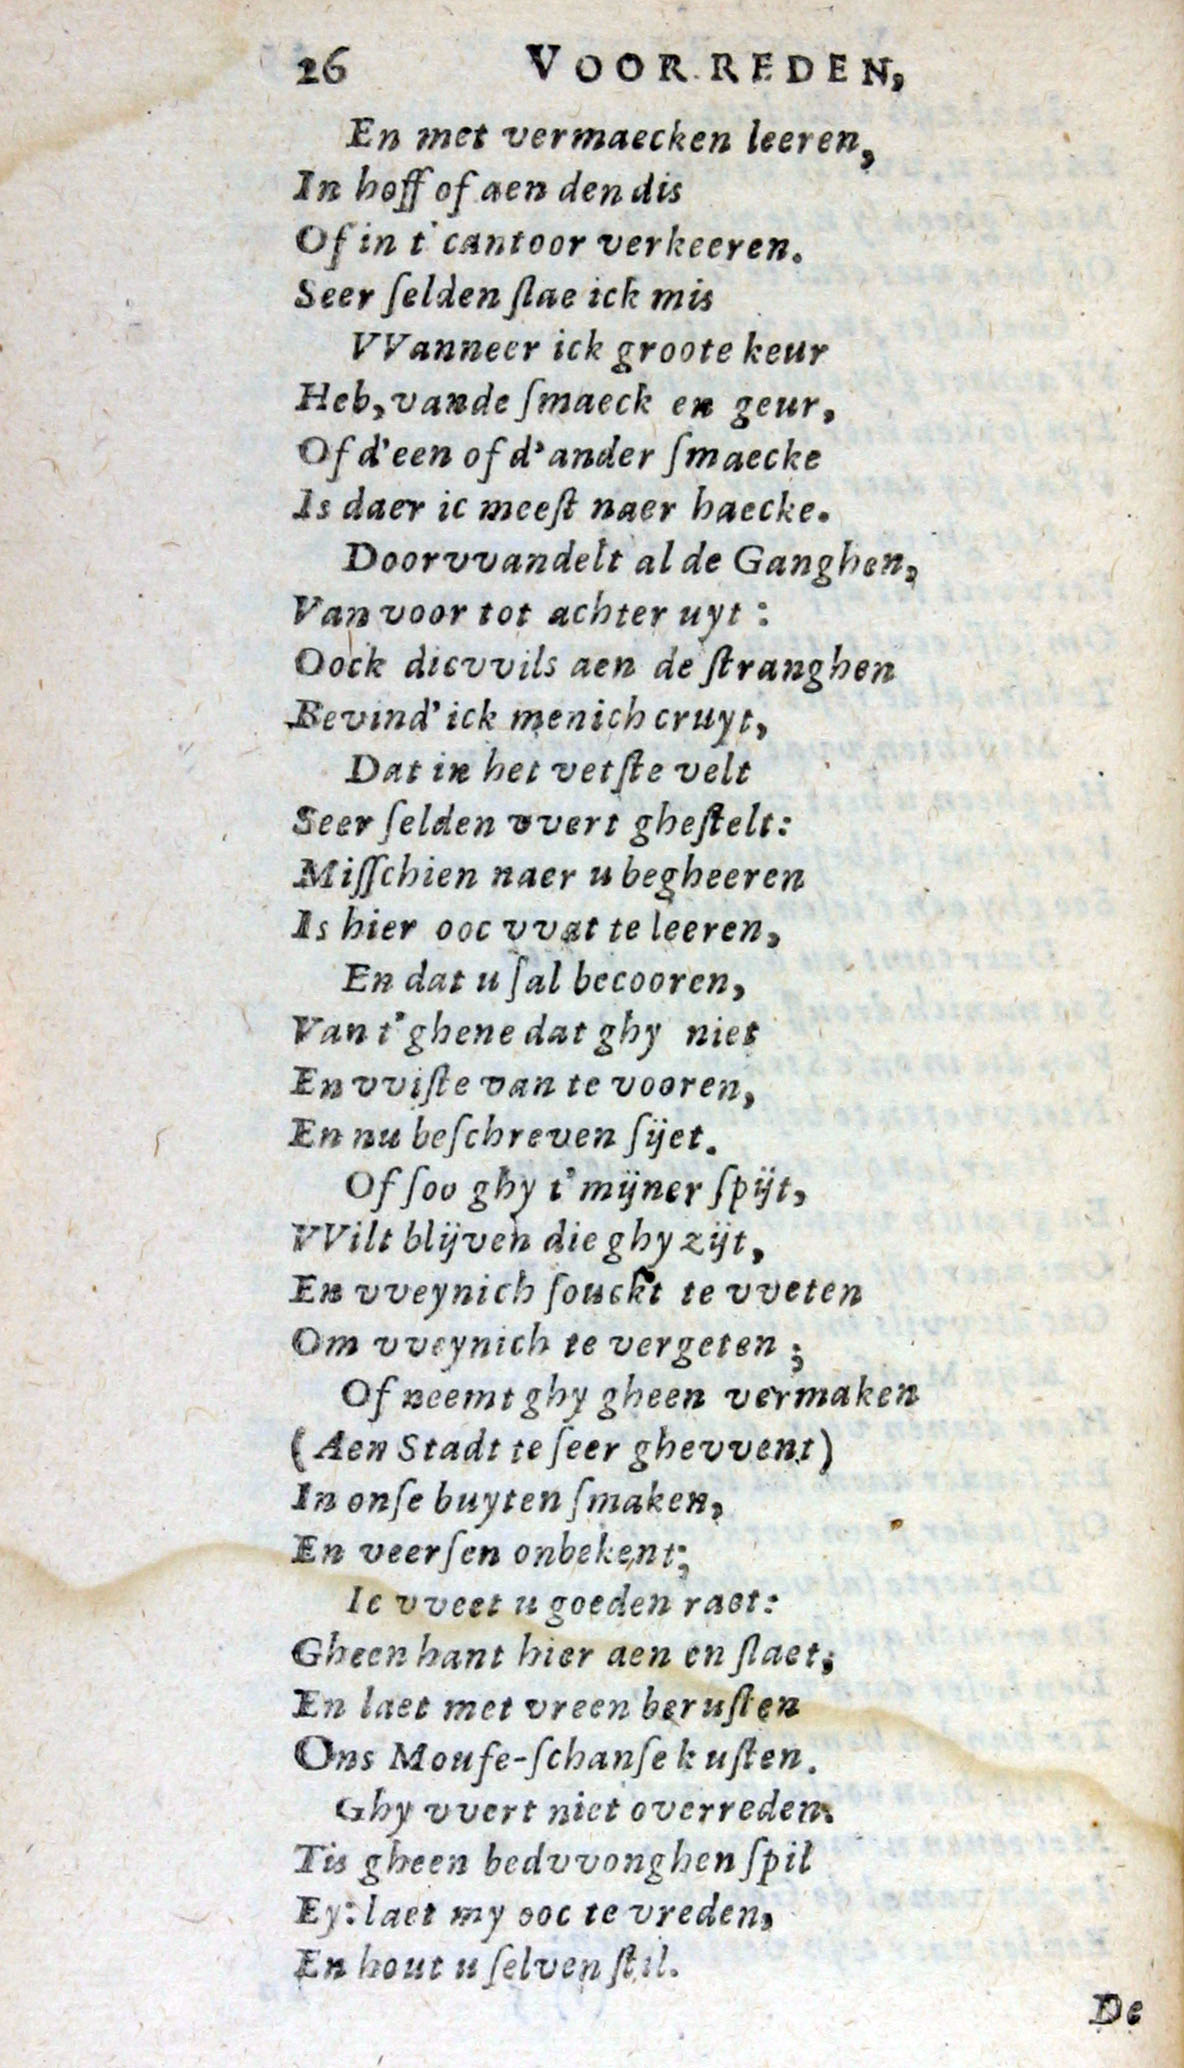 26 VOORREDEN,
En met vermaecken leeren,
In hoff of aen den dis
Of in t' cantoor verkeeren.
Seer ſelden ſlae ick mis
VVanneer ick groote keur
Heb, vande ſmaeck en geur,
Of d'een of d'ander ſmaecke
Is daer ic meeſt naer haecke.
Doorvvandelt al de Ganghen,
Van voor tot achter uyt:
Oock dicvvils aen de ſtranghen
Bevind' ick menich cruyt,
Dat in het vetſte velt
Seer ſelden vvert gheſtelt:
Miſſchien naer u begheeren
Is hier ooc vvat te leeren,
En dat u ſal becooren,
Van t' ghene dat ghy niet
En vviſte van te vooren,
En nu beſchreven ſijet.
Of ſoo ghy t' mijner ſpijt,
VVilt blijven die ghy zijt,
En vveynich ſouckt te vveten
Om vveynich te vergeten;
Of neemt ghy gheen vermaken
(Aen Stadt te ſeer ghevvent)
In onſe buyten ſmaken,
En veerſen onbekent;
Ic vveet u goeden raet:
Gheen hant hier aen en ſlaet;
En laet met vreen beruſten
Ons Moufe-ſchanſe kuſten.
Ghy vvert niet overreden.
Tis gheen bedvvonghen ſpil
Ey: laet my ooc te vreden,
En hout u ſelven ſtil.
De